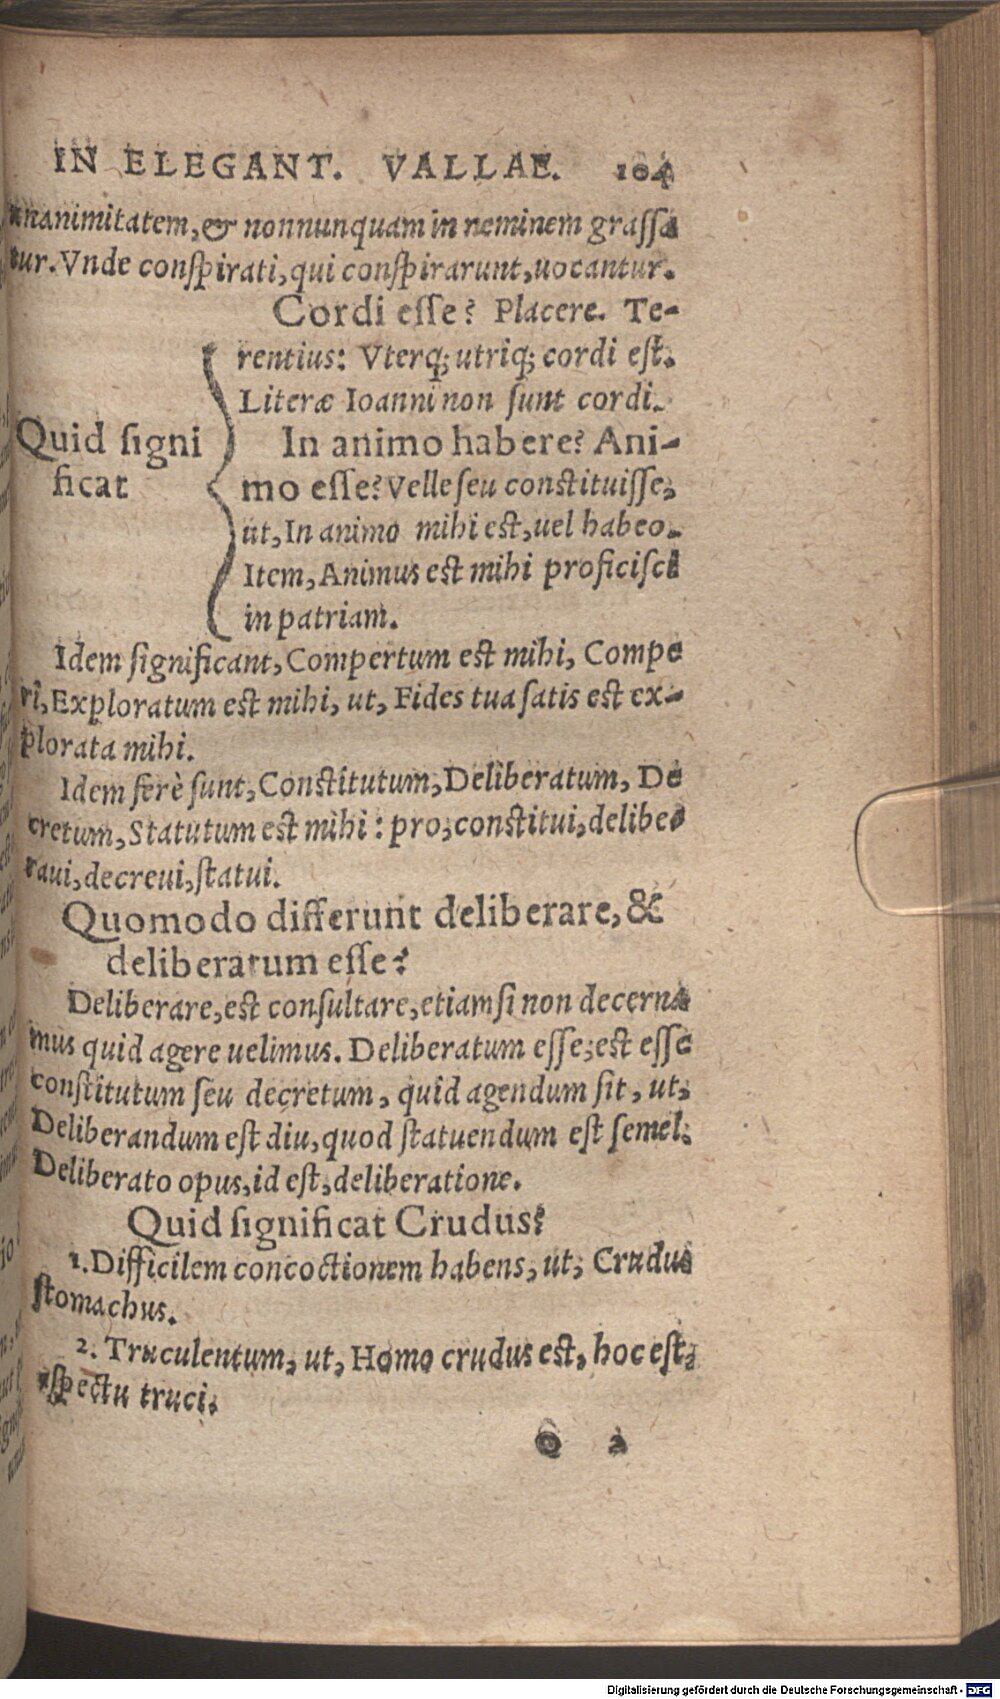 IN ELEGANT. VALLAE. 104
unanimitatem, & nonnunquam in neminem grassa
tur. Vnde conspirati, qui conspirarunt, uocantur.
Cordi esse? Placere. Te-
rentius: Vterq; utriq; cordi est.
Literæ Ioanni non sunt cordi.
Quid signi
ficat
In animo habere? Ani-
mo esse? Velle seu constituisse,
ut, In animo mihi est, uel habeo.
Item, Animus est mihi proficisci
in patriam.
Idem significant, Compertum est mihi, Compe
rî, Exploratum est mihi, ut, Fides tua satis est ex-
plorata mihi.
Idem ferè sunt, Constitutum, Deliberatum, De
cretum, Statutum est mihi: pro, constitui, delibe
raui, decreui, statui.
Quomodo differunt deliberare, &
deliberatum esse?
Deliberare, est consultare, etiamsi non decerna
mus quid agere uelimus. Deliberatum esse, est esse
constitutum seu decretum, quid agendum sit, ut,
Deliberandum est diu, quod statuendum est semel.
Deliberato opus, id est, deliberatione.
Quid significat Crudus?
1. Difficilem concoctionem habens, ut, Crudus
stomachus.
2. Truculentum, ut, Homo crudus est, hoc est,
aspectu truci.
O 2
Digitalisierung gefördert durch die Deutsche Forschungsgemeinschaft - DFG